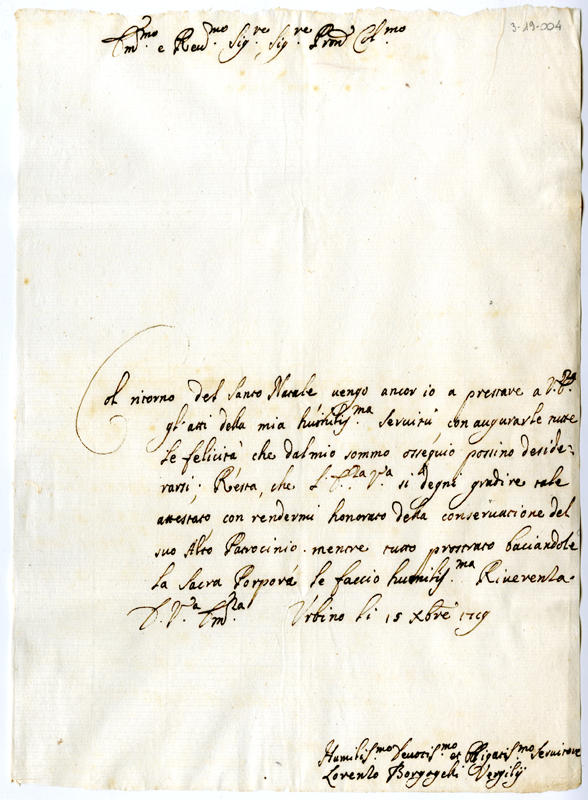 3-19-004
Em.mo e Reud.mo Sig.re, Sig.re Pron̄ Col.mo
Col ritorno del Santo Natale uengo ancor io a prestare a V.E.za
gl'atti della mia humilis.ma Seruitù con augurarle tutte
le felicità che dal mio sommo ossequio possino deside-
rarsi; Resta, che l'E.za V.a si degni gradire tale
attestato con rendermi honorato della conseruacione del
suo Alto Patrocinio. mentre tutto prostrato baciandole
la Sacra Porpora le faccio humilis.ma Riuerenza.
D. V.a Em.za Urbino li 15 Xbre 1719
Humilis.mo Deuotis.mo et Obligatis.mo Seruitore
Lorenzo Borgogelli Vergilij